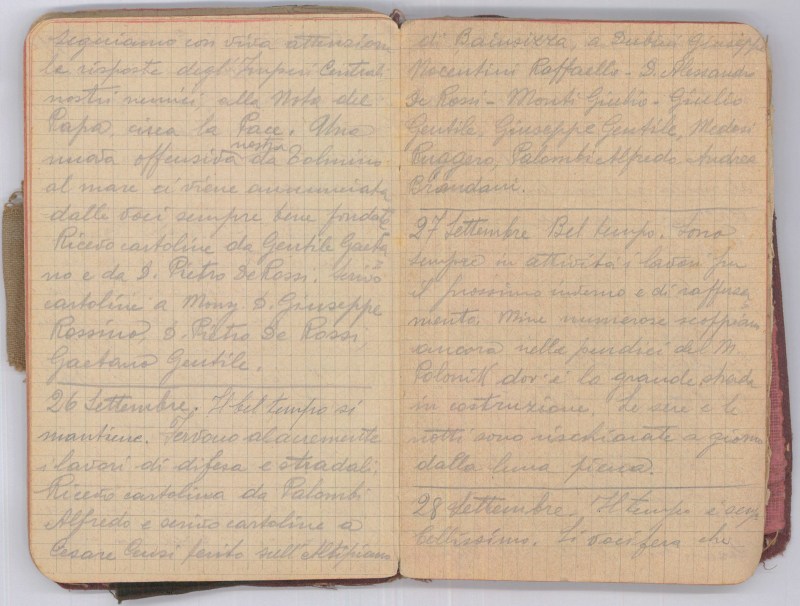 seguiamo con viva attenzion
le risposte degl'Imperi Central
nostri nemici, alla Nota del
Papa, circa la Pace. Una
nuova offensiva nostra da Tolmino
al mare ci viene annunciata
dalle voci sempre bene fondate
Ricevo cartoline da Gentile Gaeta
no e da D. Pietro De Rossi. Scrivo
cartoline a Mons. D. Giuseppe
Rossino, D. Pietro De Rossi,
Gaetano Gentile.
26 Settembre. Il bel tempo si
mantiene. Fervono alacremente
i lavori di difesa e stradali.
Ricevo cartolina da Palombi
Alfredo e scrivo cartoline a
Cesare ferito sull'Altipiano
di Bainsizza, a Giuseppe
Nocentini Raffaello - D. Alessandro
De Rossi - Monti Giulio - Giulio
Gentile, Giuseppe Gentile, Medori
Ruggero, Palombi Alfredo, Andrea
Brandani.
27 Settembre Bel tempo. Sono
sempre in attività i lavori per
il prossimo inverno e di rafforza
mento. Mine numerose scoppian
ancora nelle pendici del M.
Polonik dov'è la grande strada
in costruzione. Le sere e le
notti sono rischiarate a giorno
dalla luna piena.
28 Settembre, Il tempo è
bellissimo. Si vocifera che